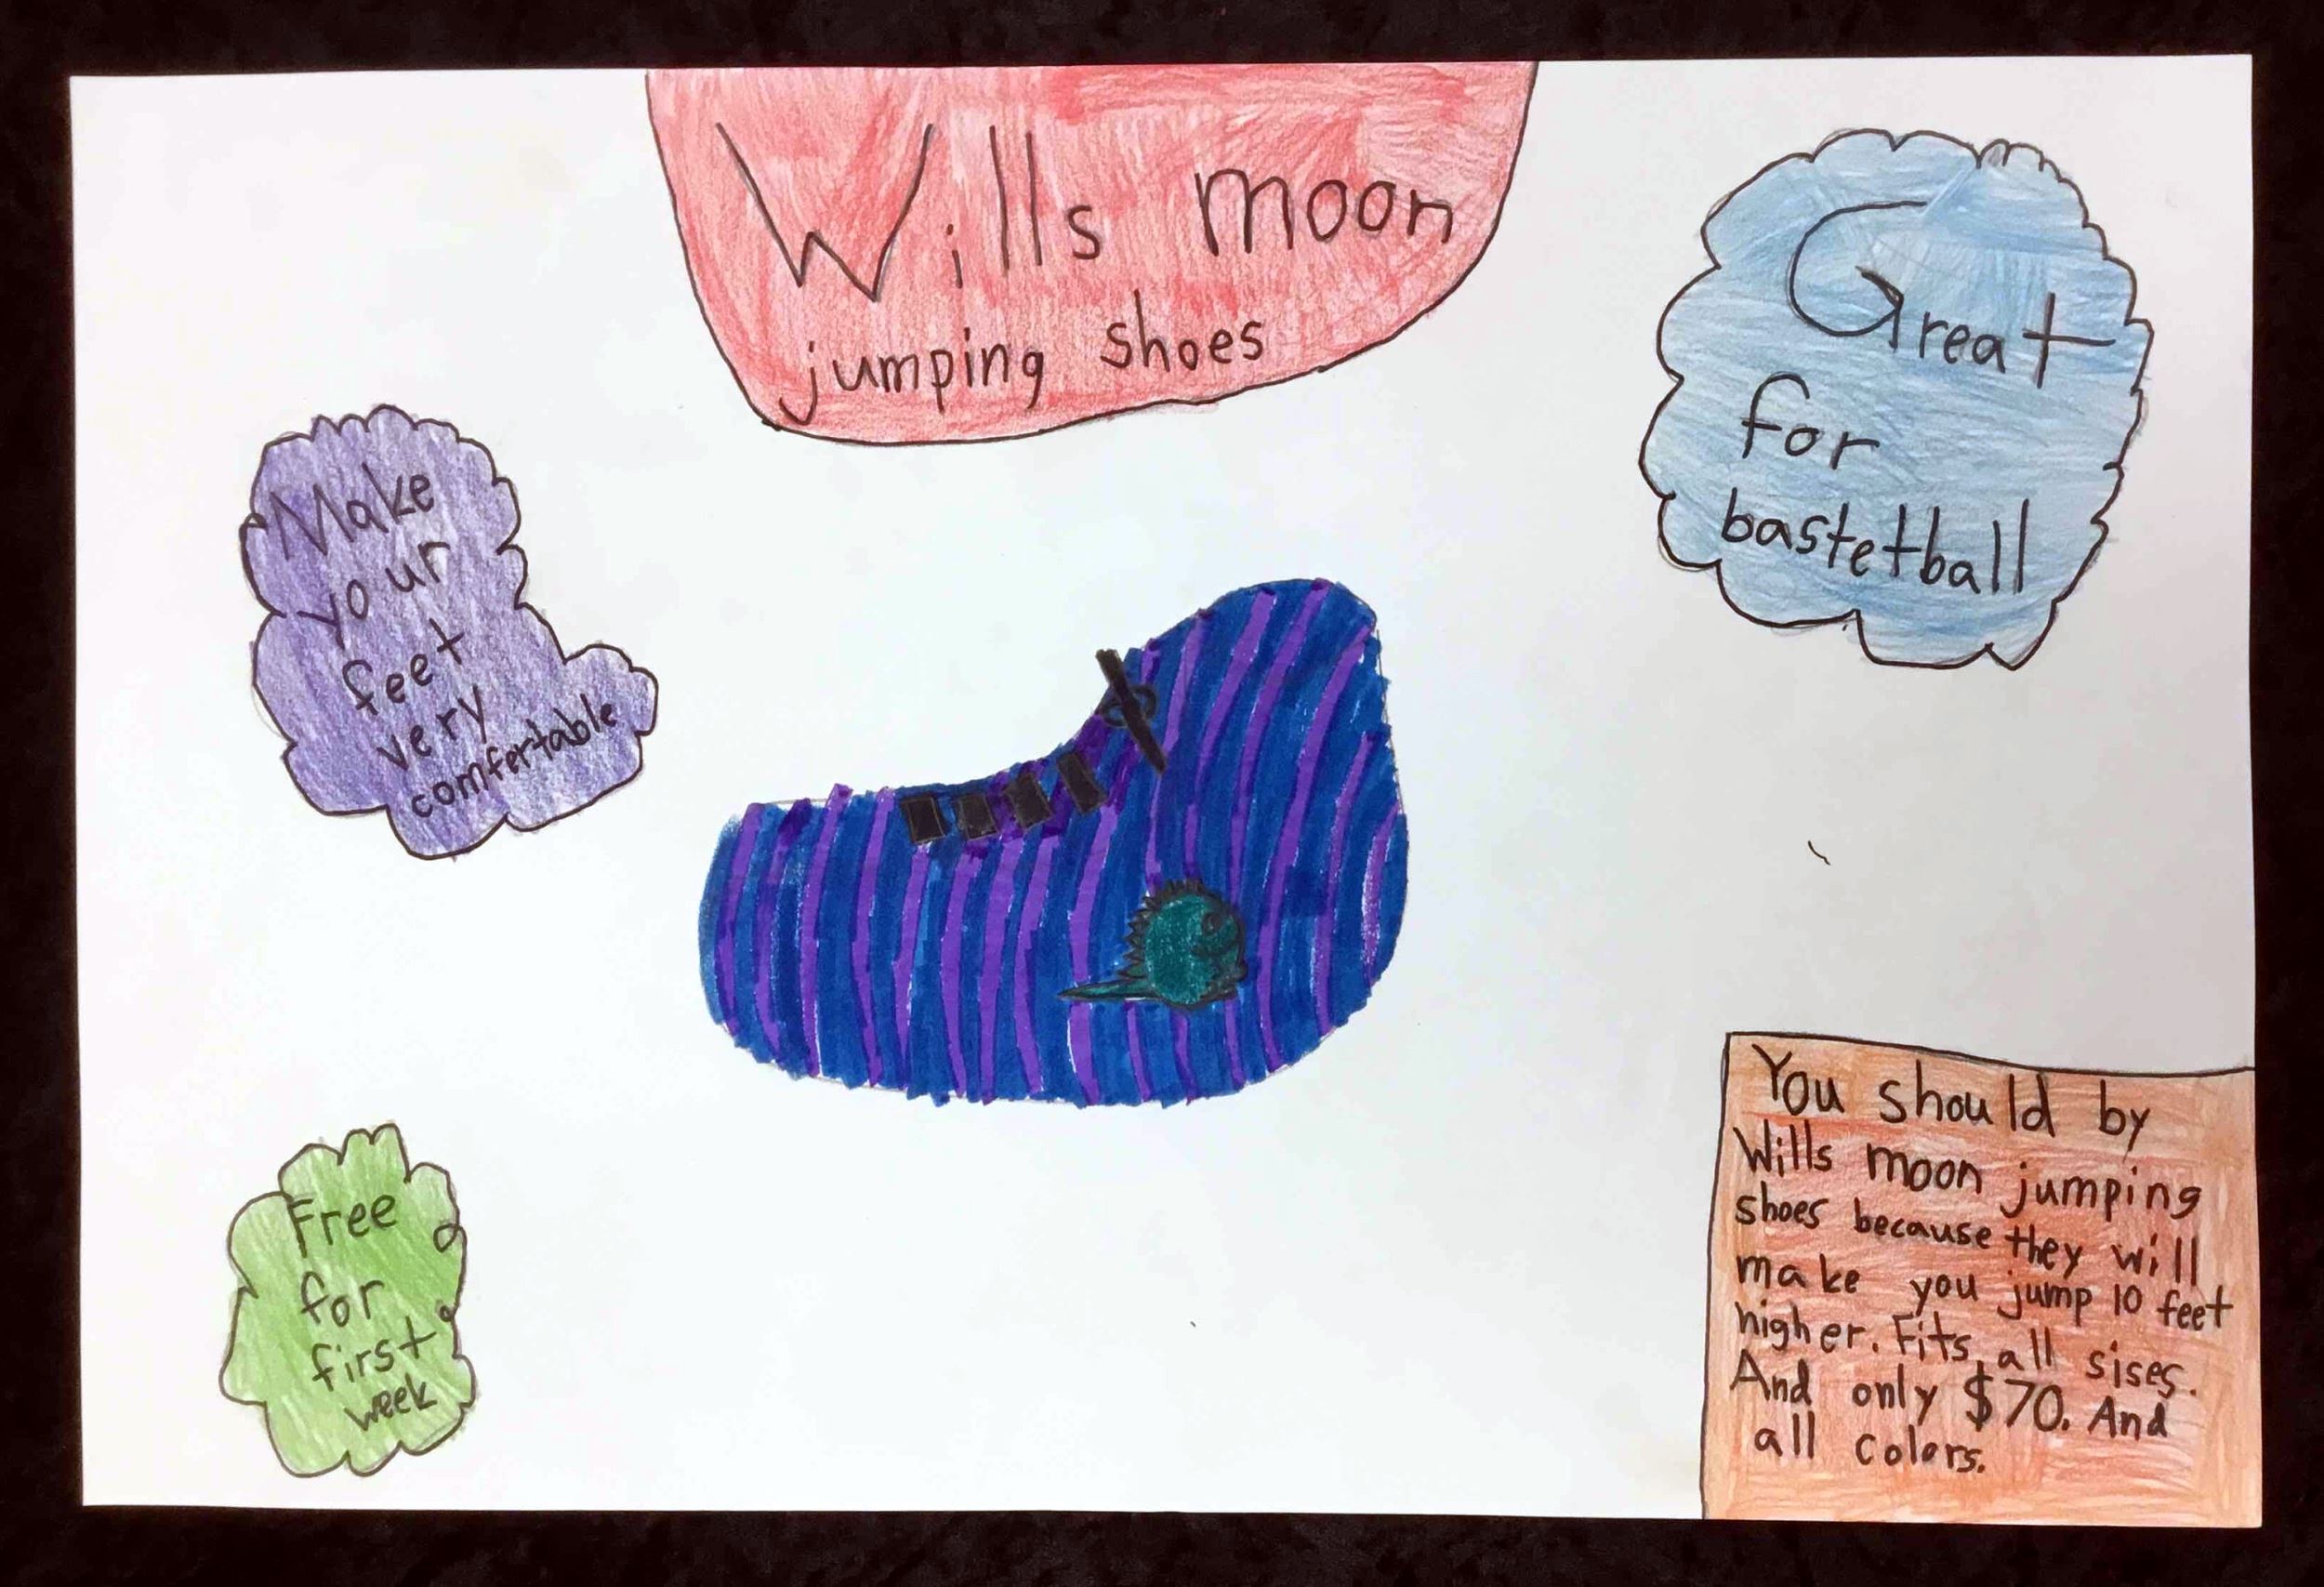 Wills moon
jumping shoes
Great
for
bastetball
Make
your
feet
very
comfertable
Free
for
first
week
You should by
Wills moon jumping
shoes because they will
make you jump 10 feet
higher. Fits all sises.
And only $70. And
all colors.